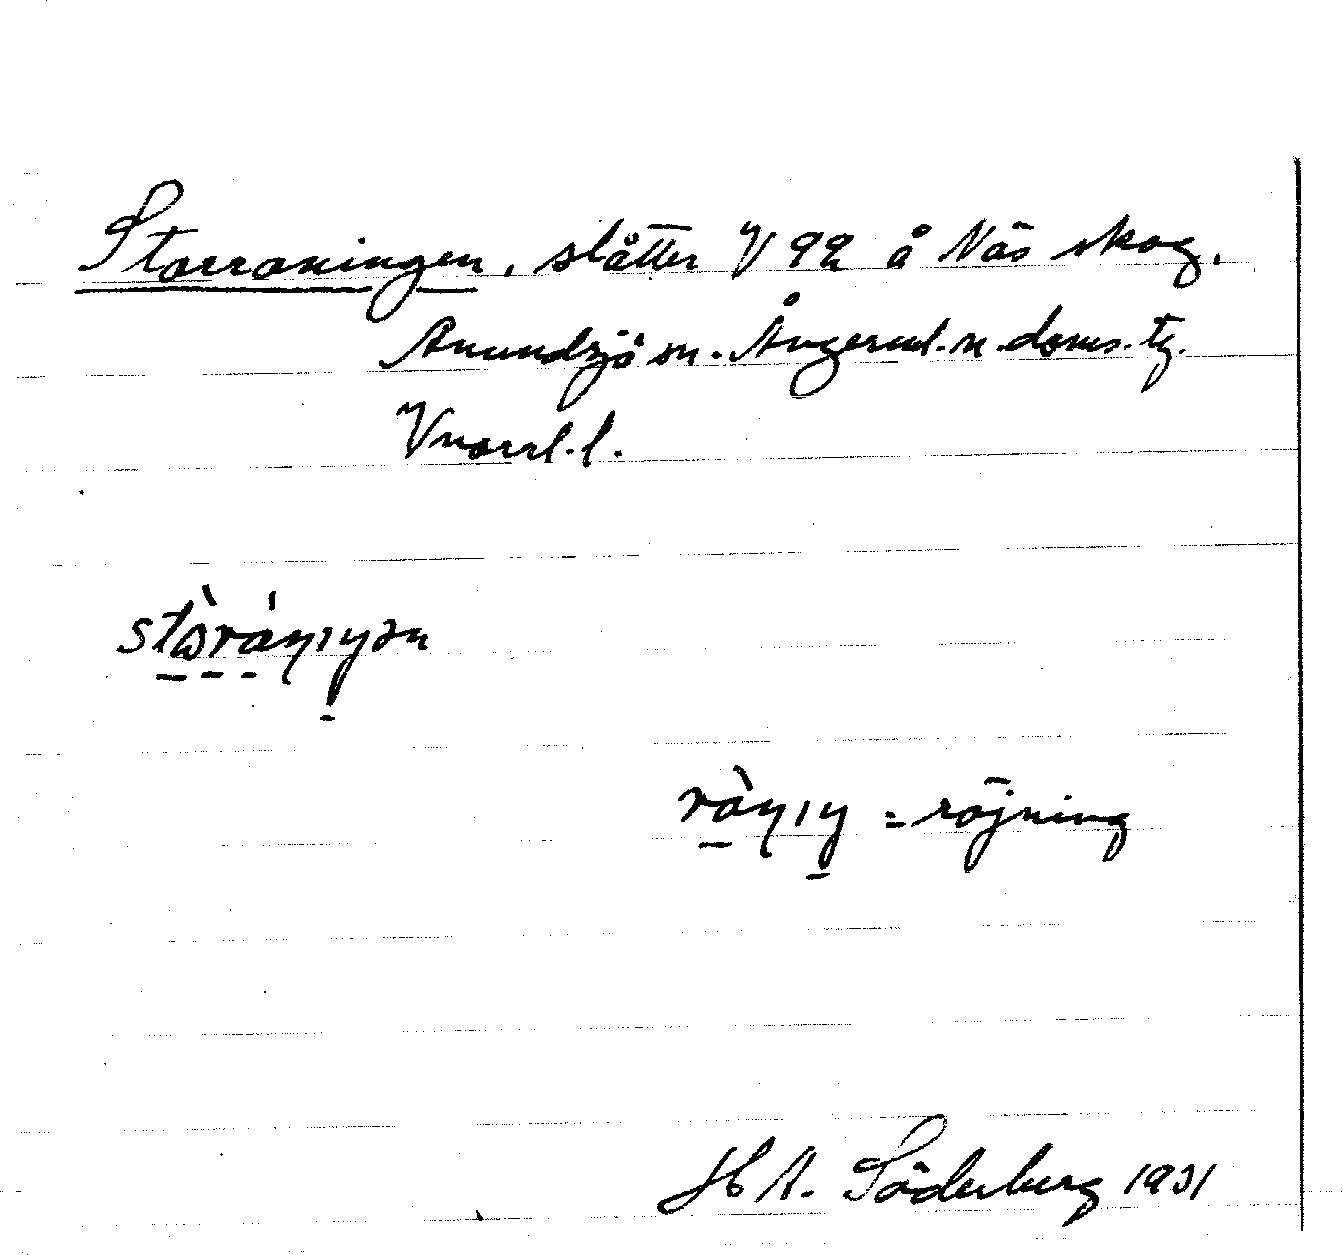 Storroningen, slåtter V 92 å Näs skog.
Anundsjö sn. Ångerml. n. doms. tg.
Vnorrl. l.
ràŋıŋ = röjning
H A. Söderberg 1931